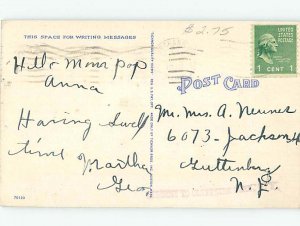 THIS SPACE FOR WRITING MESSAGES
$2.75
UNITED STATES
POSTAGE
1 CENT 1
POST CARD
Hello Mom Pop
Anna
Having swell
time Martha
Geo
Mr. Mrs. A. Neunes
6073 - Jackson
Guttenberg
N. J.